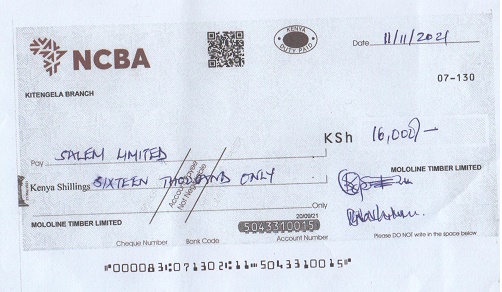 NCBA
KENYA
DUTY PAID
Date 11/11/2021
07-130
KITENGELA BRANCH
KSh 16,000/-
Pay SALEM LIMITED
Kenya Shillings SIXTEEN THOUSAND ONLY
Account Payee
Not Negotiable
Only
MOLOLINE TIMBER LIMITED
MOLOLINE TIMBER LIMITED
20/09/21
5043310015
Cheque Number Bank Code Account Number
Please DO NOT write in the space below
"000083:071302:11"5043310015"